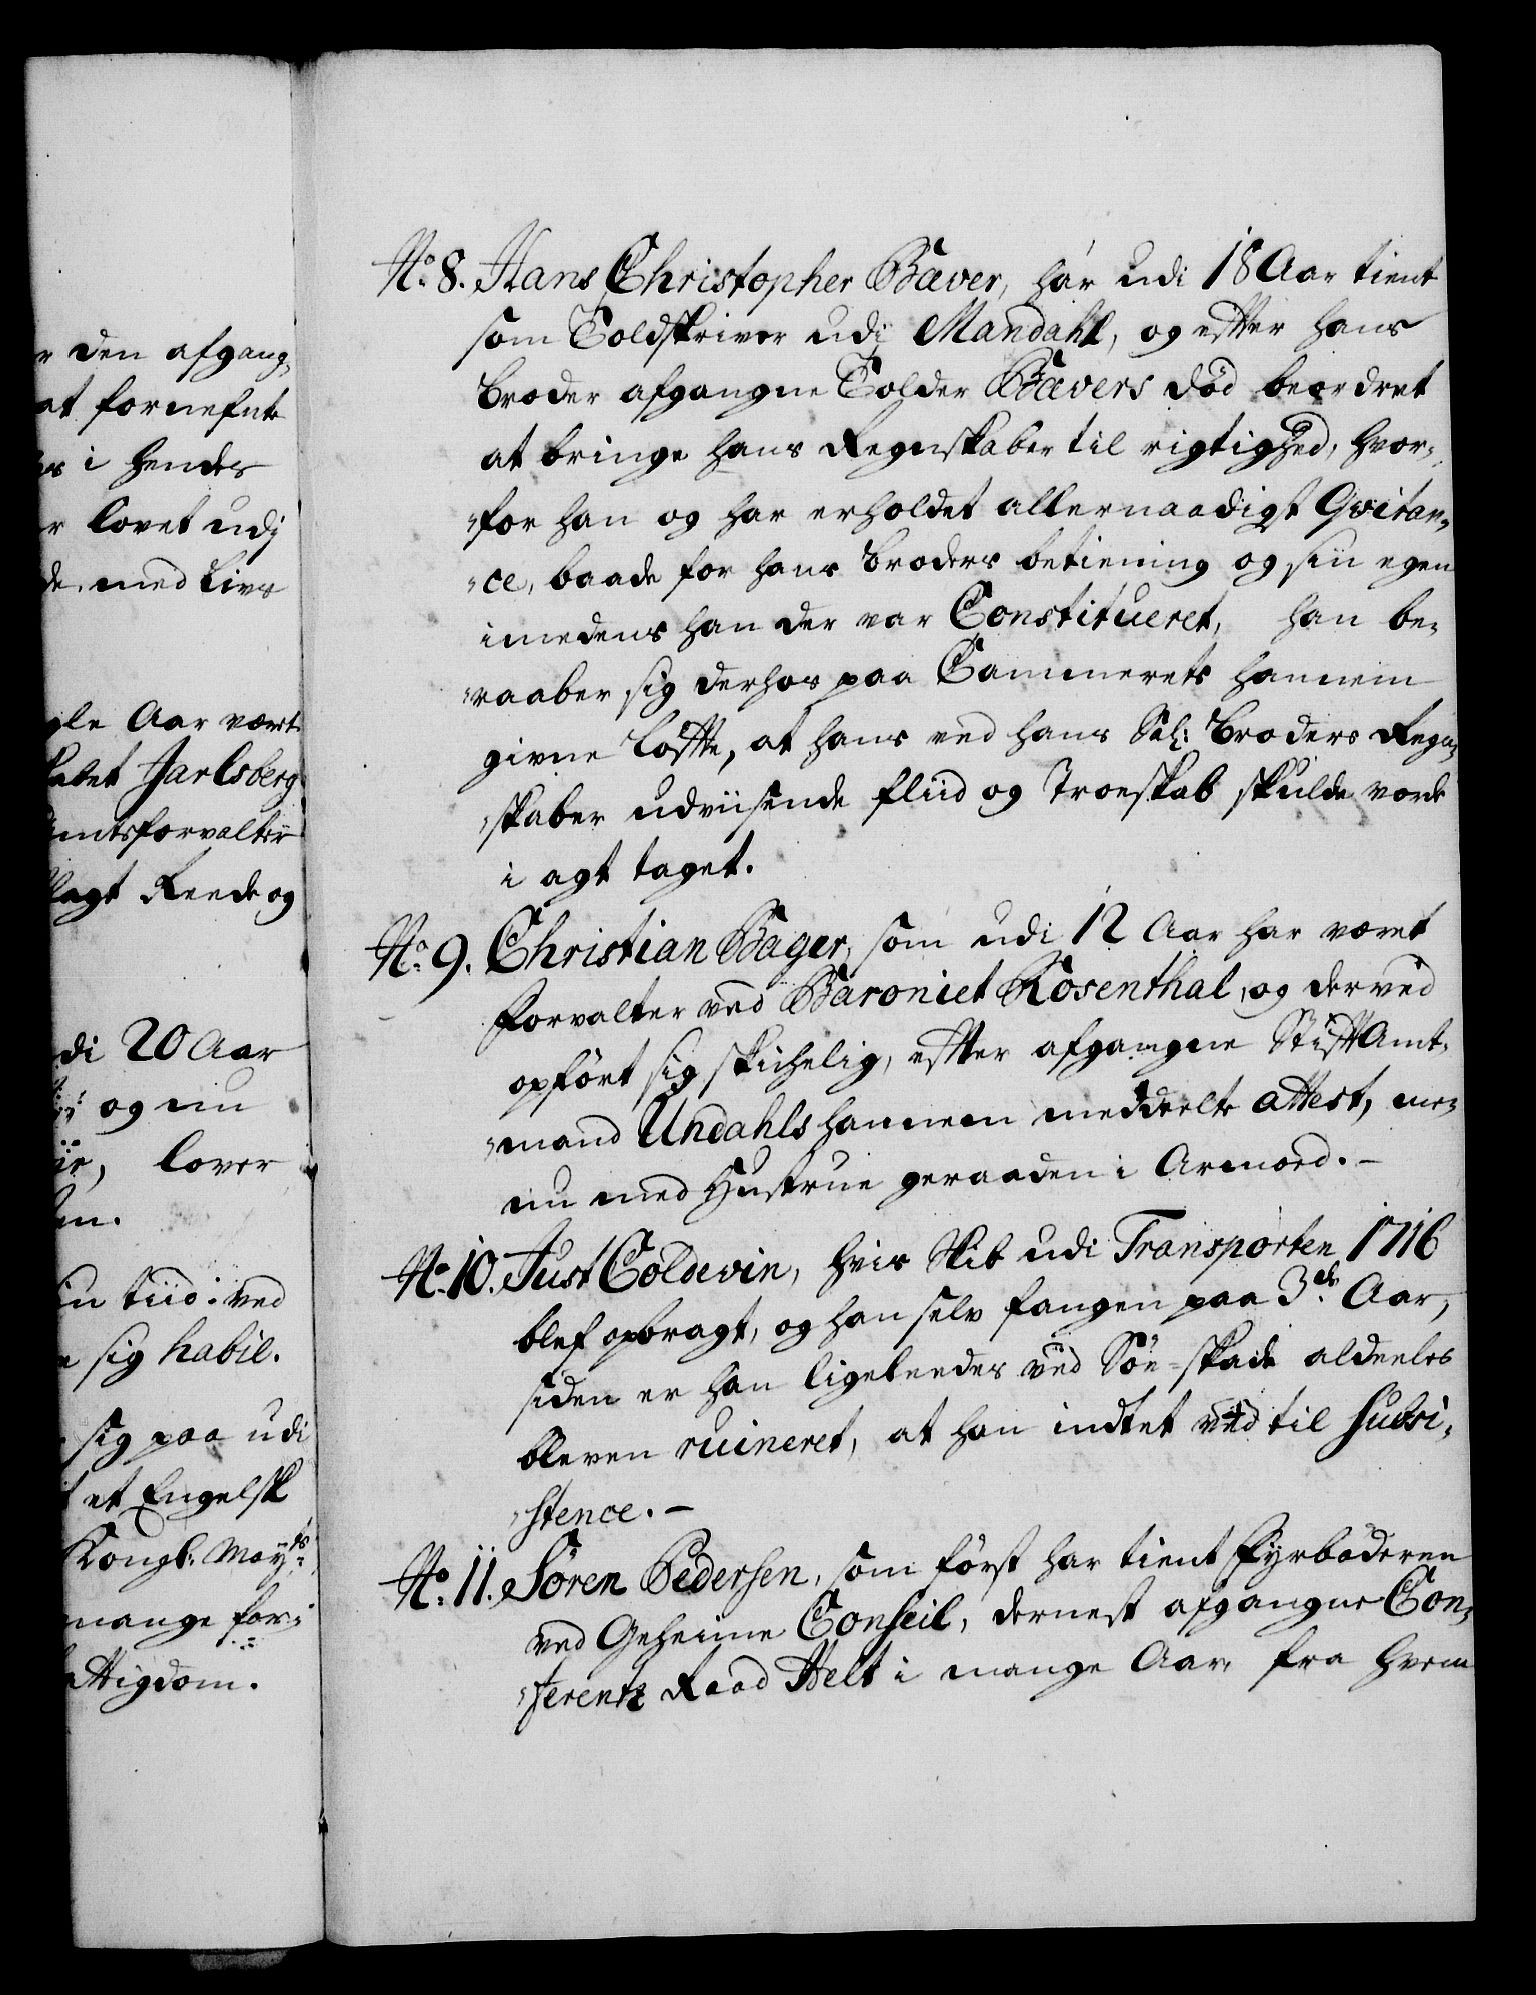 r den afgang,
at fornefnte
i hendes
r lovet udj
de, med Livs
gle Aar været
Jarlsberg
Amtsforvalter
lagt Reede og
di 20 Aar
og nu
lover
en.
in tiid: ved
sig habil.
sig paa udi
et Engelsk
Kongl: Mayts:
mange for:
attigdom.
No. 8. Hans Christopher Bæver, har udi 18 Aar tient
som Toldskriver udj Mandahl, og effter hans
broder afgangne Tolder Bævers død beordret
at bringe hans Regnskaber til rigtighed, hvor-
"for han og har erholdet allernaadigst Qvitan-
"ce, baade for hans broders betiening og sin egen
imedens han der var Constitueret, han be-
"raaber sig derhos paa Cammerets hannem
givne løffte, at hans ved hans Sal: Broders Regn-
"skaber udviisende fliid og Troeskab skulde vorde
i agt taget.
No. 9. Christian Bager, som udi 12 Aar har været
forvalter ved Baroniet Rosenthal, og derved
opført sig skichelig, effter afgangne StifftAmt-
"mand Undahls hannem meddeelte attest, me-
nu med Hustrue geraaden i Armoed. -
No. 10. Just Coldevin, hvis Skib udi Transporten 1716
blef opbragt, og han selv fangen paa 3de Aar,
siden er han ligeleedes ved Søe-skade aldeeles
bleven ruineret, at han indtet ved til Subsi-
"stence. -
No. 11. Søren Pedersen, som først har tient Fyrbøderen
ved Geheime Conseil, dernest afgangne Con-
"ferentz Raad Helt i mange Aar, fra hvem